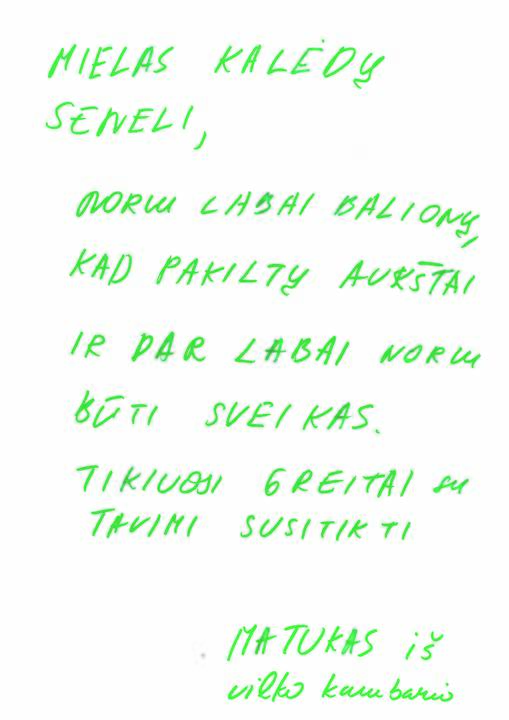 MIELAS KALĖDŲ
SENELI,
NORIU LABAI BALIONŲ,
KAD PAKILTŲ AUKŠTAI
IR DAR LABAI NORIU
BŪTI SVEIKAS.
TIKIUOSI GREITAI su
TAVIMI SUSITIKTI
MATUKAS iš
vilko kambario